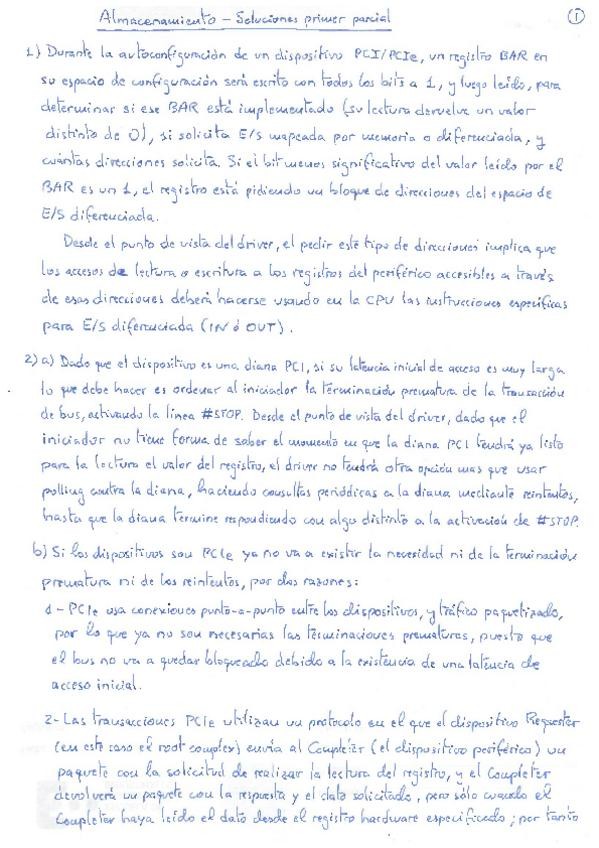 Almacenamiento – Soluciones primer parcial
1
1) Durante la autoconfiguración de un dispositivo PCI/PCIe, un registro BAR en
su espacio de configuración será escrito con todos los bits a 1, y luego leído, para
determinar si ese BAR está implementado (su lectura devuelve un valor
distinto de 0), si solicita E/S mapeada por memoria o diferenciada, y
cuántas direcciones solicita. Si el bit menos significativo del valor leído por el
BAR es un 1, el registro está pidiendo un bloque de direcciones del espacio de
E/S diferenciada.
Desde el punto de vista del driver, el pedir este tipo de direcciones implica que
los accesos de lectura o escritura a los registros del periférico accesibles a través
de esas direcciones deberá hacerse usando en la CPU las instrucciones específicas
para E/S diferenciada (IN ó OUT).
2) a) Dado que el dispositivo es una diana PCI, si su latencia inicial de acceso es muy larga
lo que debe hacer es ordenar al iniciador la terminación prematura de la transacción
de bus, activando la línea #STOP. Desde el punto de vista del driver, dado que el
iniciador no tiene forma de saber el momento en que la diana PCI tendrá ya listo
para la lectura el valor del registro, el driver no tendrá otra opción mas que usar
polling contra la diana, haciendo consultas periódicas a la diana mediante reintentos,
hasta que la diana termine respondiendo con algo distinto a la activación de #STOP.
b) Si los dispositivos son PCIe ya no va a existir la necesidad ni de la terminación
prematura ni de los reintentos, por dos razones:
1 - PCIe usa conexiones punto-a-punto entre los dispositivos, y tráfico paquetizado,
por lo que ya no son necesarias las terminaciones prematuras, puesto que
el bus no va a quedar bloqueado debido a la existencia de una latencia de
acceso inicial.
2 - Las transacciones PCIe utilizan un protocolo en el que el dispositivo Requester
(en este caso el root complex) envía al Completer (el dispositivo periférico) un
paquete con la solicitud de realizar la lectura del registro, y el Completer
devolverá un paquete con la respuesta y el dato solicitado, pero sólo cuando el
Completer haya leído el dato desde el registro hardware especificado; por tanto